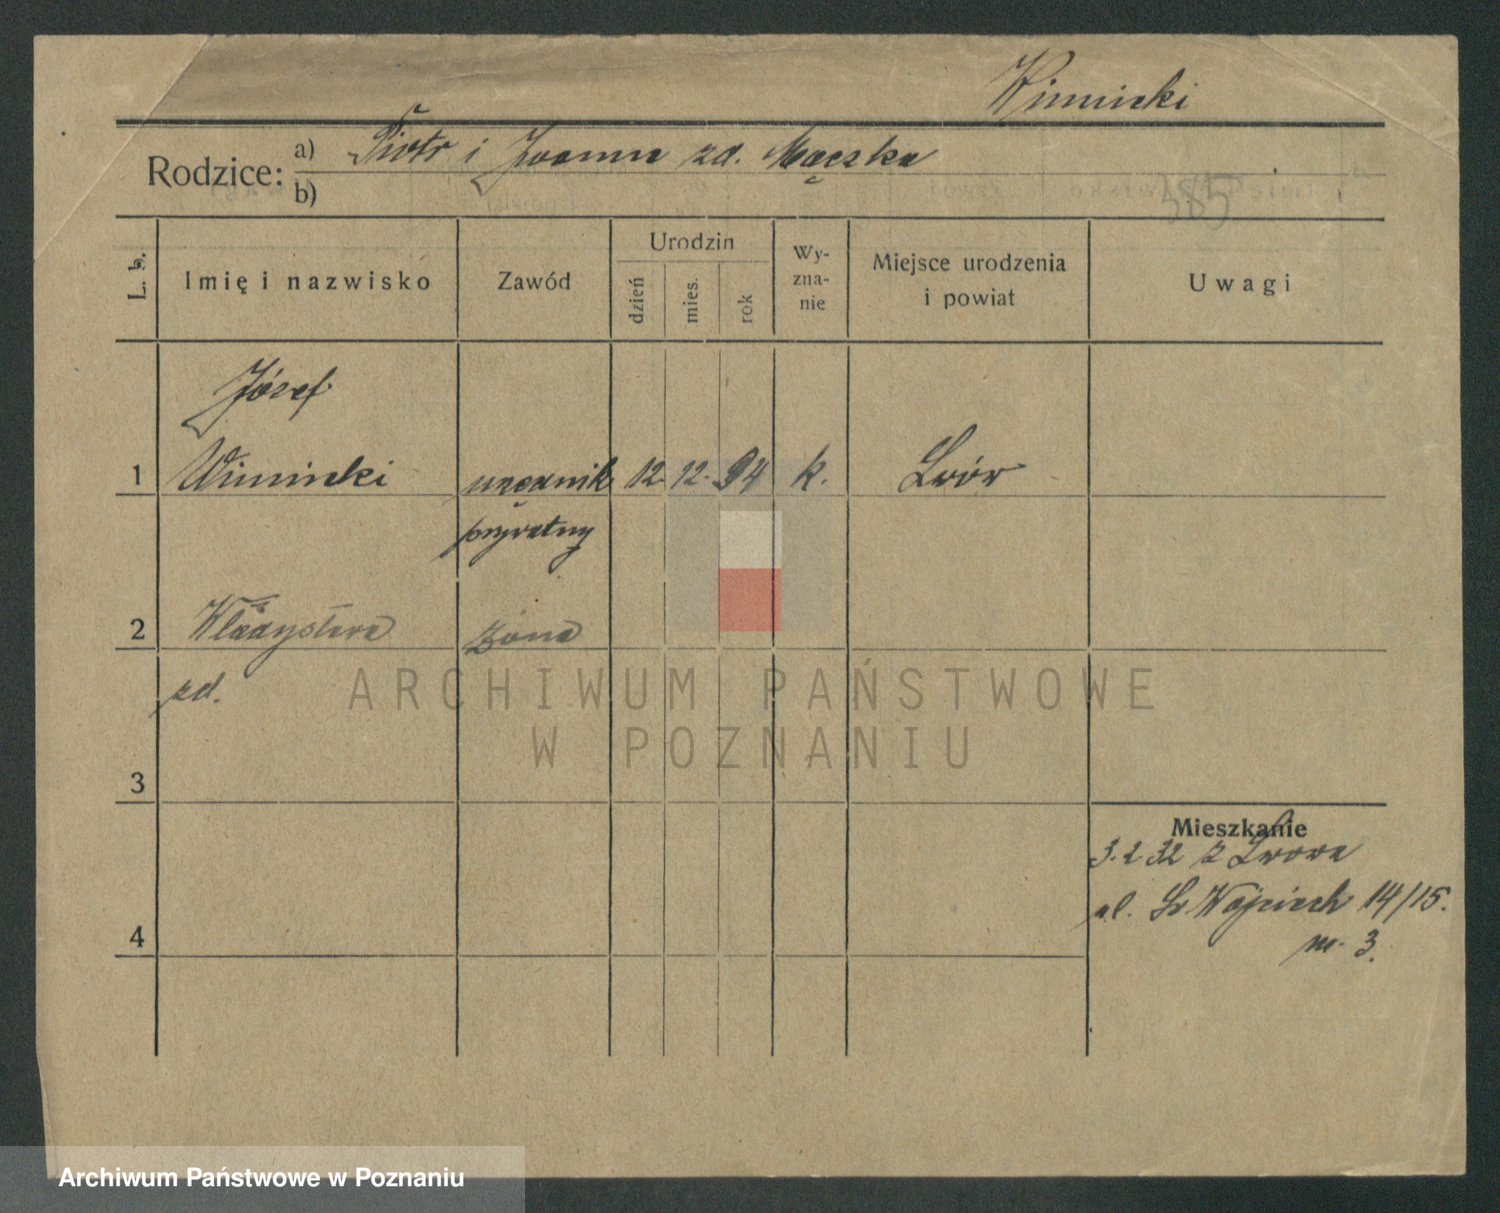 Winnicki
Rodzice: a) Piotr i Joanna zd. Mączka
b)
385
L. b.
Imię i nazwisko
Zawód
Urodzin
dzień
mies.
rok
Wy-
zna-
nie
Miejsce urodzenia
i powiat
Uwagi
Józef
1 Winnicki urzędnik 12. 12. 94 k. Lwów
prywatny
2 Władysława żona
zd.
ARCHIWUM PAŃSTWOWE
W POZNANIU
3
Mieszkanie
3.2 32 z Lwowa
ul. Św Wojciech 14/15.
4
m. 3.
Archiwum Państwowe w Poznaniu